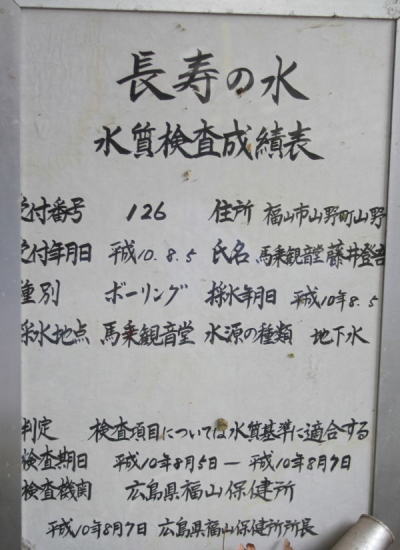 長寿の水
水質検査成績表
受付番号 126 住所 福山市山野町山野
受付年月日 平成10.8.5 氏名 馬乗観音堂藤井登
種別 ボーリング 採水年月日 平成10年8.5
採水地点 馬乗観音堂 水源の種類 地下水
判定 検査項目については水質基準に適合する
検査期日 平成10年8月5日―平成10年8月7日
検査機関 広島県福山保健所
平成10年8月7日 広島県福山保健所所長